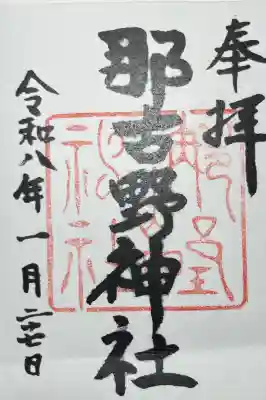 奉拝
那古野神社
令和八年一月二十七日